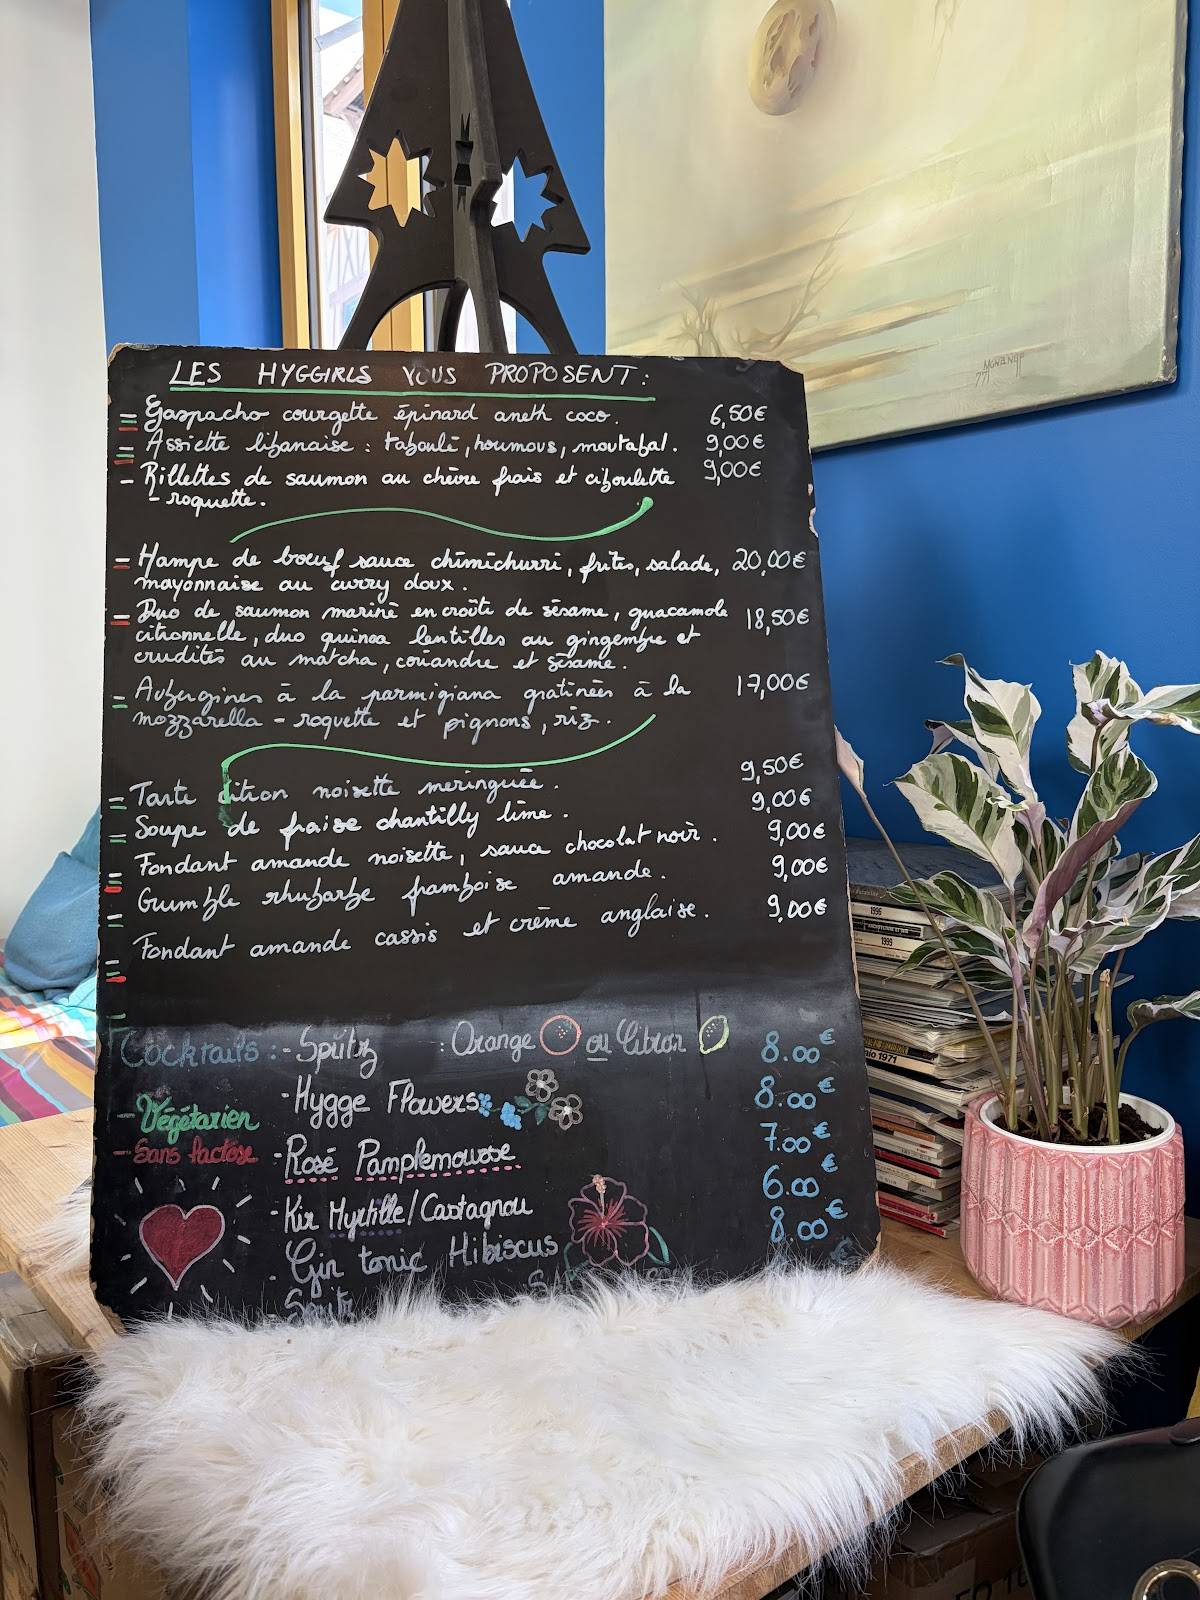 LES HYGGIRLS VOUS PROPOSENT :
= Gaspacho courgette épinard aneth coco. 6,50€
= Assiette libanaise : taboulé, houmous, moutabal. 9,00€
- Rillettes de saumon au chèvre frais et ciboulette 9,00€
- roquette.
- Hampe de boeuf sauce chimichurri, frites, salade, 20,00€
mayonnaise au curry doux.
- Duo de saumon mariné en croûte de sésame, guacamole 18,50€
citronnelle, duo quinoa lentilles au gingembre et
crudités au matcha, coriandre et sésame.
- Aubergines à la parmigiana gratinées à la 17,00€
mozzarella - roquette et pignons, riz.
Tarte citron noisette meringuée. 9,50€
Soupe de fraise chantilly lime. 9,00€
Fondant amande noisette, sauce chocolat noir. 9,00€
Crumble rhubarbe framboise amande. 9,00€
Fondant amande cassis et crème anglaise. 9,00€
Cocktails : - Spritz : Orange ou Citron 8.00€
- Hygge Flowers 8.00€
- Végétarien
- Sans lactose
- Rosé Pamplemousse 7.00€
- Kir Myrtille/Castagnou 6.00€
- Gin tonic Hibiscus 8.00€
Spritz €
1996
1999
1971